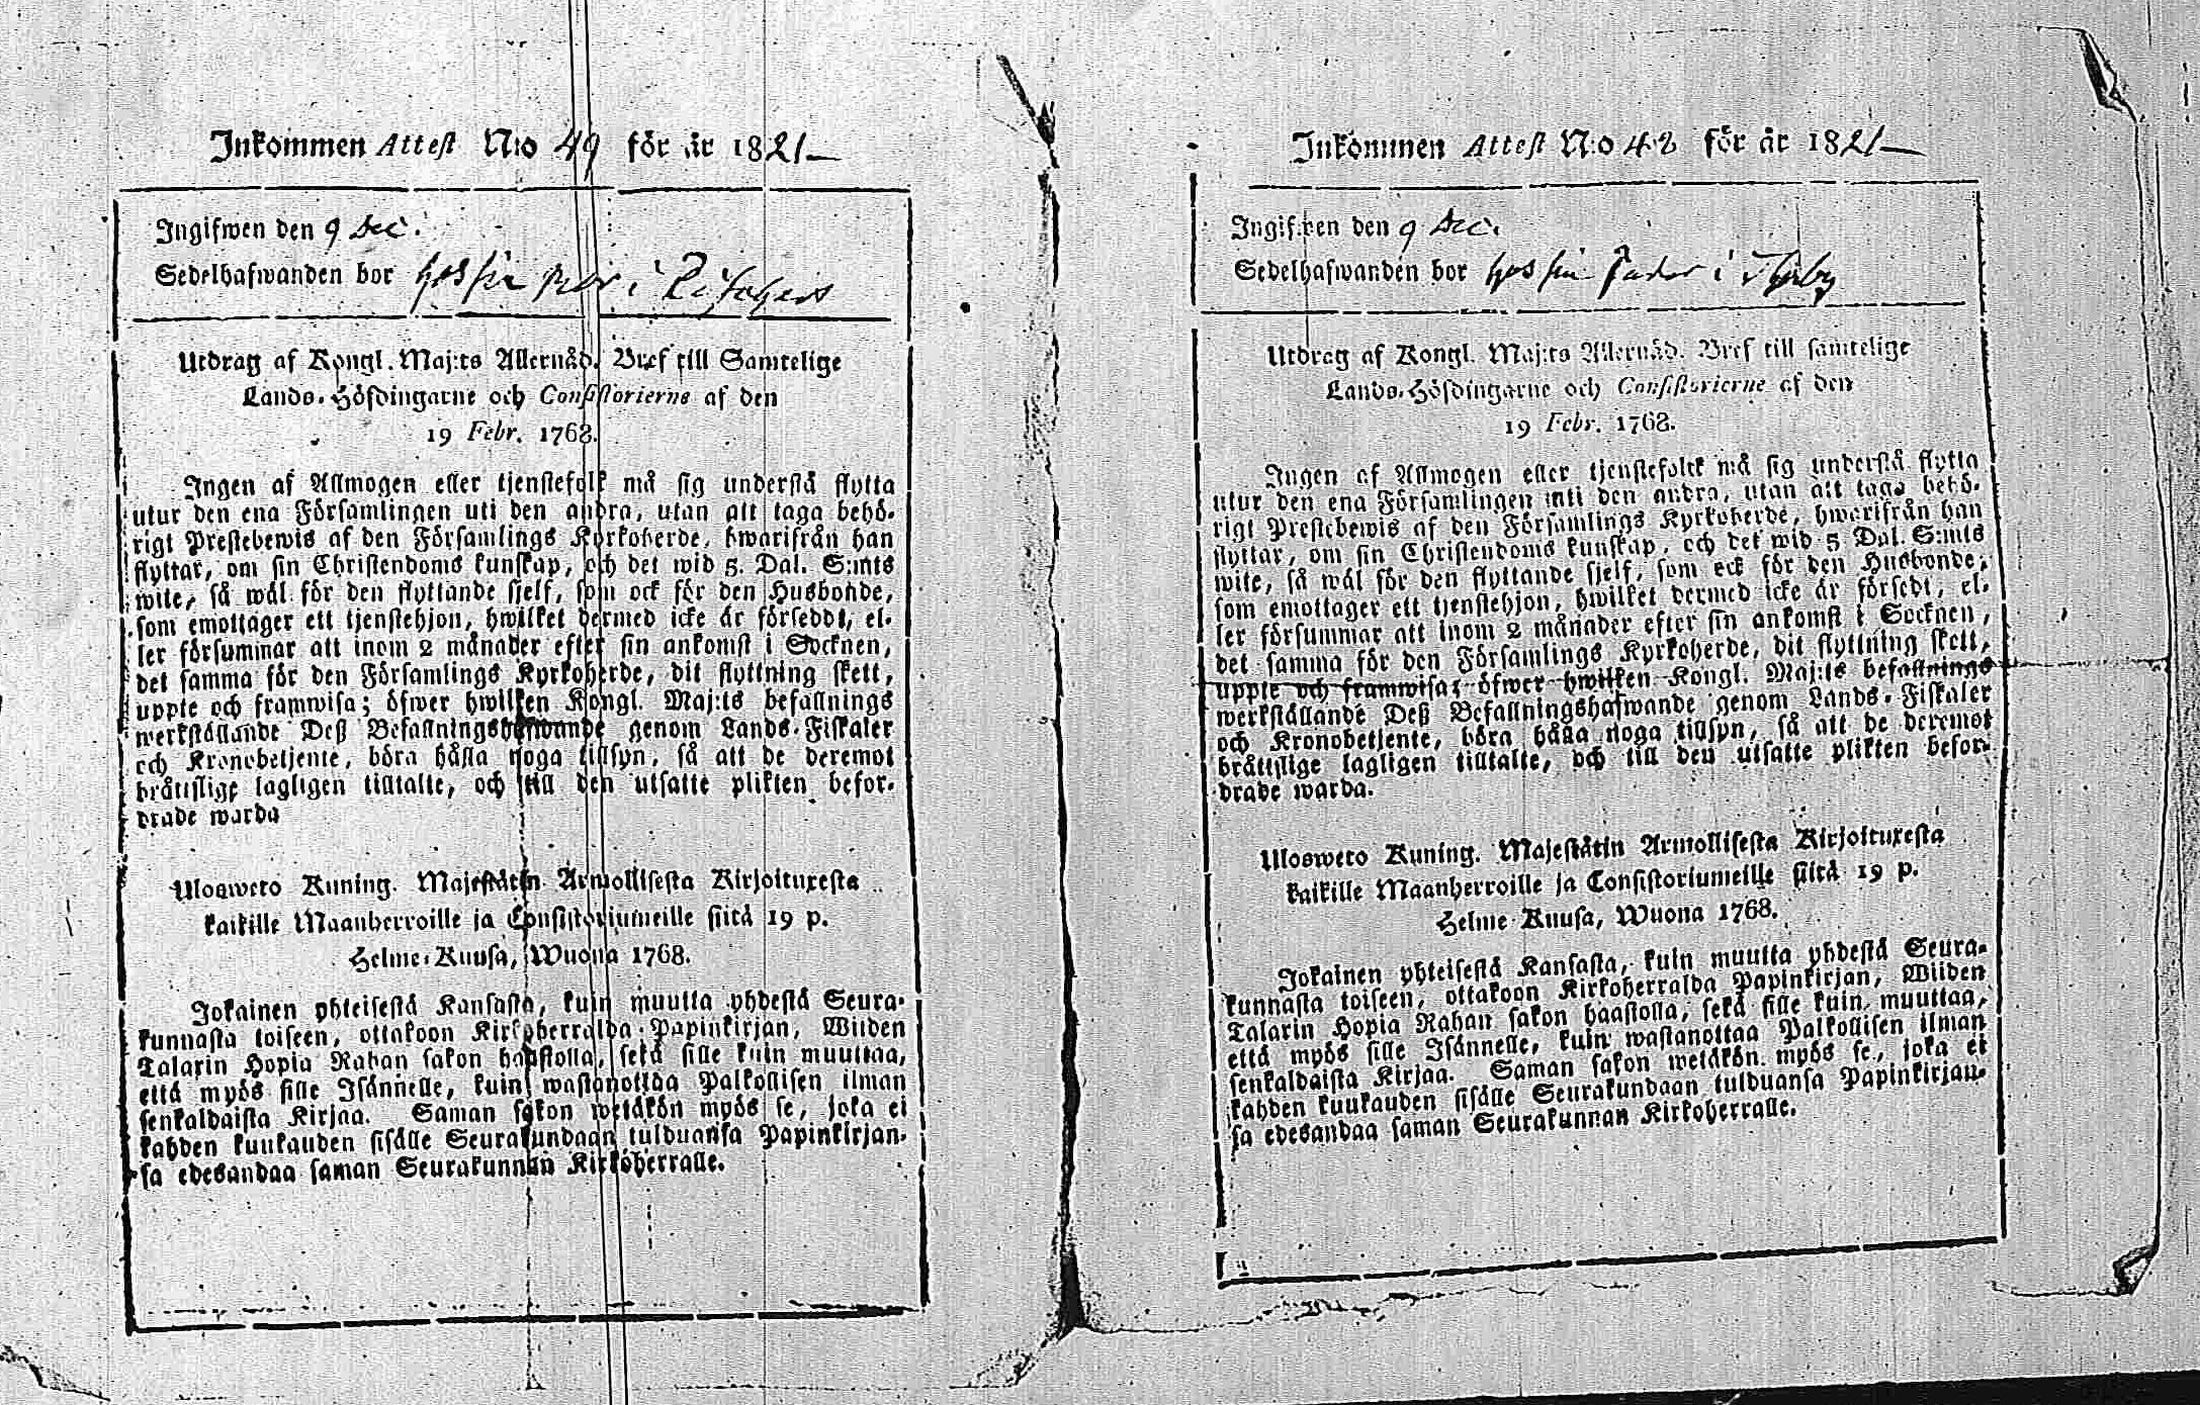 Inkommen Attest N:o 49 för år 1821
Ingifwen den 9 Dec.
Sedelhafwanden bor hos sin i
Utdrag af Kongl. Maj:ts Allernåd. Bref till Samtelige
Lands-Höfdingarne och Consistorierne af den
19 Febr. 1768.
Ingen af Allmogen eller tjenstefolk må sig understå flytta
utur den ena Församlingen uti den andra, utan att taga behö-
rigt Prestebewis af den Församlings Kyrkoherde, hwarifrån han
flyttar, om sin Christendoms kunskap, och det wid 5. Dal. S:mts
wite, så wäl för den flyttande sjelf, som ock för den Husbonde,
som emottager ett tjenstehjon, hwilket dermed icke är förseddt, el-
ler försummar att inom 2 månader efter sin ankomst i Socknen,
det samma för den Församlings Kyrkoherde, dit flyttning skett,
uppte och framwisa; öfwer hwilken Kongl. Maj:ts befallnings
werkställande Deß Befallningshafwande genom Lands-Fiskaler
och Kronobetjente, böra hålla noga tillsyn, så att de deremot
bråttslige lagligen tilltalte, och till den utsatte plikten befor-
drade warda
Ulosweto Kuning. Majestätin Armollisesta Kirjoituxesta
kaikille Maanherroille ja Consistoriumeille siitä 19 p.
Helme-Kuusa, Wuona 1768.
Jokainen yhteisestä Kansasta, kuin muutta yhdestä Seura-
kunnasta toiseen, ottakoon Kirkoherralda Papinkirjan, Wiiden
Talarin Hopia Rahan sakon haastolla, sekä sille kuin muuttaa,
että myös sille Isännelle, kuin wastanottaa Palkollisen ilman
senkaldaista Kirjaa. Saman sakon wetäkön myös se, joka ei
kahden kuukauden sisälle Seurakundaan tulduansa Papinkirjan-
sa edesandaa saman Seurakunnan Kirkoherralle.
Inkommen Attest N:o 48 för år 1821
Ingifwen den 9 Dec.
Sedelhafwanden bor hos sin Fader i
Utdrag af Kongl. Maj:ts Allernåd. Bref till samtelige
Lands-Höfdingarne och Consistorierne af den
19 Febr. 1768.
Ingen af Allmogen eller tjenstefolck må sig understå flytta
utur den ena Församlingen inti den andra, utan att taga behö-
rigt Prestebewis af den Församlings Kyrkoherde, hwarifrån han
flyttar, om sin Christendoms kunskap, och det wid 5 Dal. S:mts
wite, så wäl för den flyttande sjelf, som ock för den Husbonde,
som emottager ett tjenstehjon, hwilket dermed icke är försedt, el-
ler försummar att inom 2 månader efter sin ankomst i Socknen,
det samma för den Församlings Kyrkoherde, dit flyttning skett,
uppte och framwisa; öfwer hwilken Kongl. Maj:ts befallnings
werkställande Deß Befallningshafwande genom Lands-Fiskaler
och Kronobetjente, böra hålla noga tillsyn, så att de deremot
bråttslige lagligen tilltalte, och till den utsatte plikten befor-
drade warda.
Ulosweto Kuning. Majestätin Armollisesta Kirjoituxesta
kaikille Maanherroille ja Consistoriumeille siitä 19 p.
Helme-Kuusa, Wuona 1768.
Jokainen yhteisestä Kansasta, kuin muutta yhdestä Seura-
kunnasta toiseen, ottakoon Kirkoherralda Papinkirjan, Wiiden
Talarin Hopia Rahan sakon haastolla, sekä sille kuin muuttaa,
että myös sille Isännelle, kuin wastanottaa Palkollisen ilman
senkaldaista Kirjaa. Saman sakon wetäkön myös se, joka ei
kahden kuukauden sisälle Seurakundaan tulduansa Papinkirjan-
sa edesandaa saman Seurakunnan Kirkoherralle.